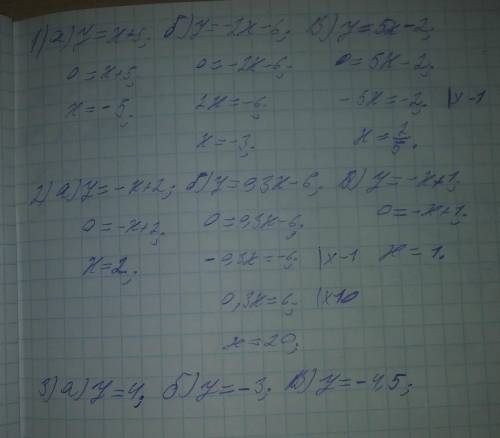 1) а) y=x+5; б) y=-2x-6; в) y=5x-2;
0=x+5; 0=-2x-6; 0=5x-2;
x=-5; 2x=-6; -5x=-2; |x-1
x=-3; x=2/5.
2) а) y=-x+2; б) y=0,3x-6; в) y=-x+1;
0=-x+2; 0=0,3x-6; 0=-x+1;
x=2; -0,3x=-6; |x-1 x=1.
0,3x=6; |x10
x=20;
3) а) y=4; б) y=-3; в) y=-4,5;